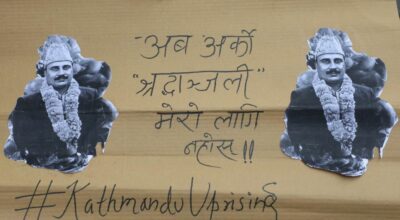 अब अर्को
"श्रद्धाञ्जली"
मेरो लागि
नहोस् !!
#KathmanduUprising